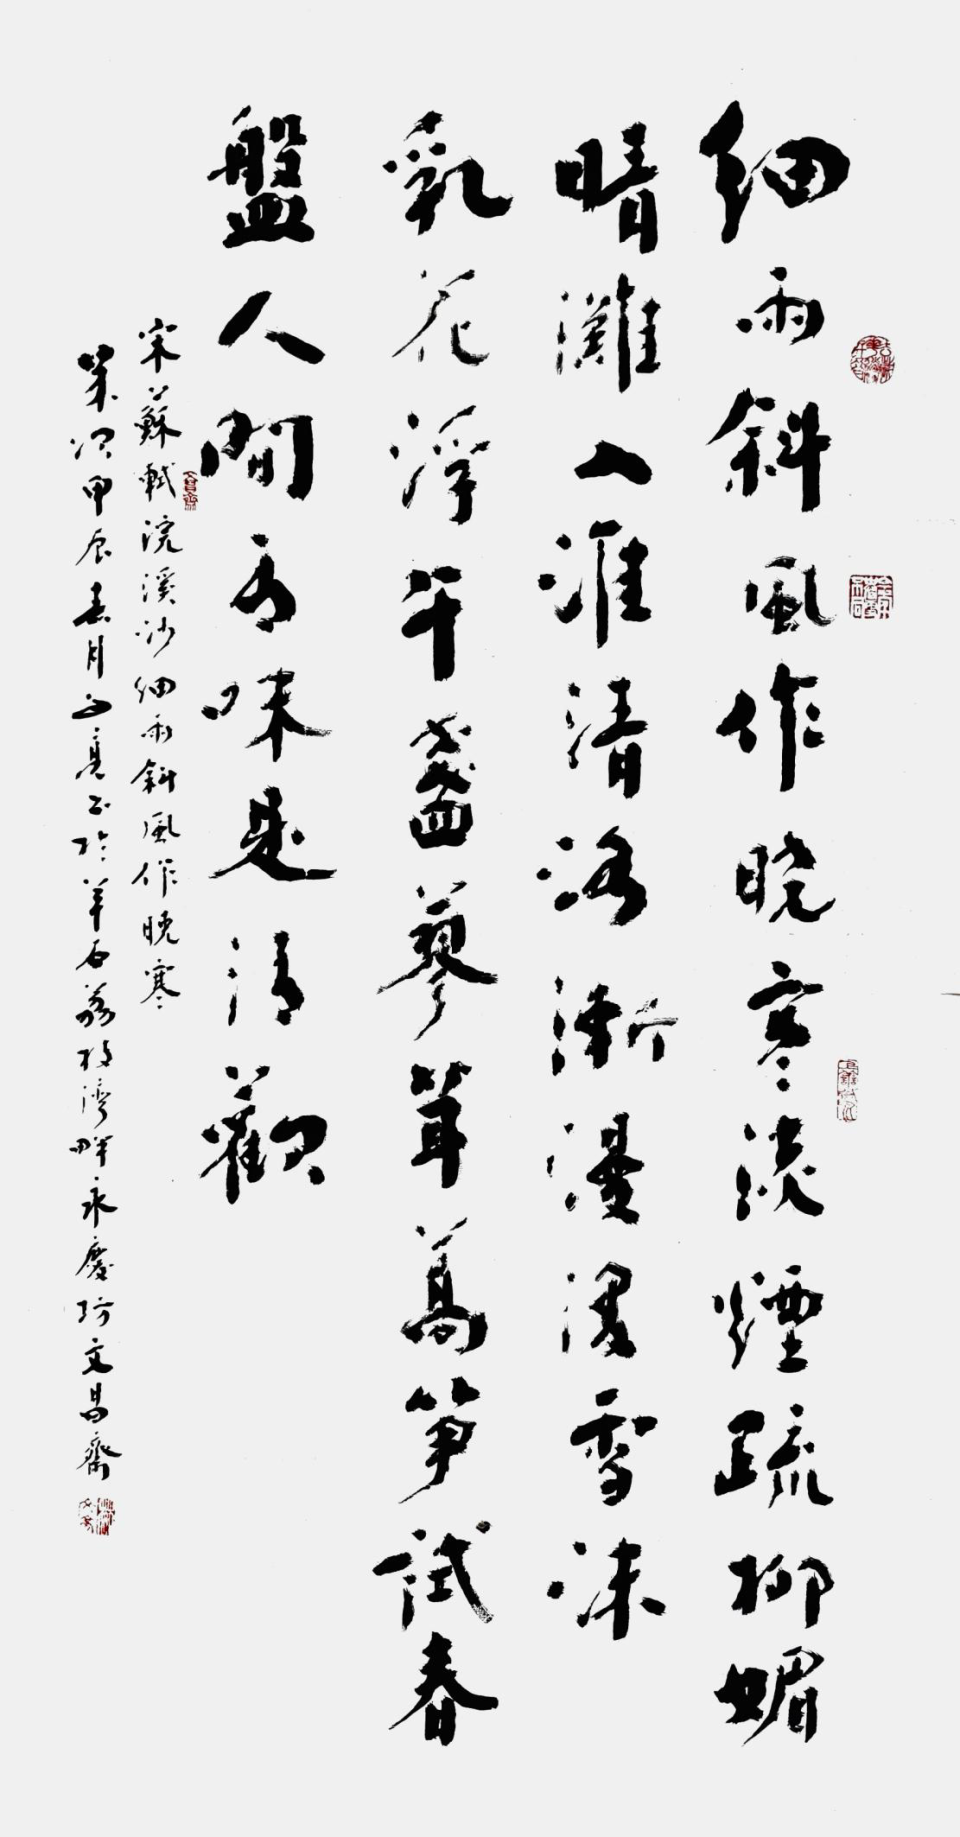 細雨斜風作晓寒淡煙疏柳媚
晴灘入淮清洛漸漫漫雪沫
乳花浮午盞蓼茸蒿笋試春
盤人間有味是清歡
宋蘇軾浣溪沙細雨斜風作晓寒
歲次甲辰春月亮書於羊石荔枝灣畔永慶坊文昌齋